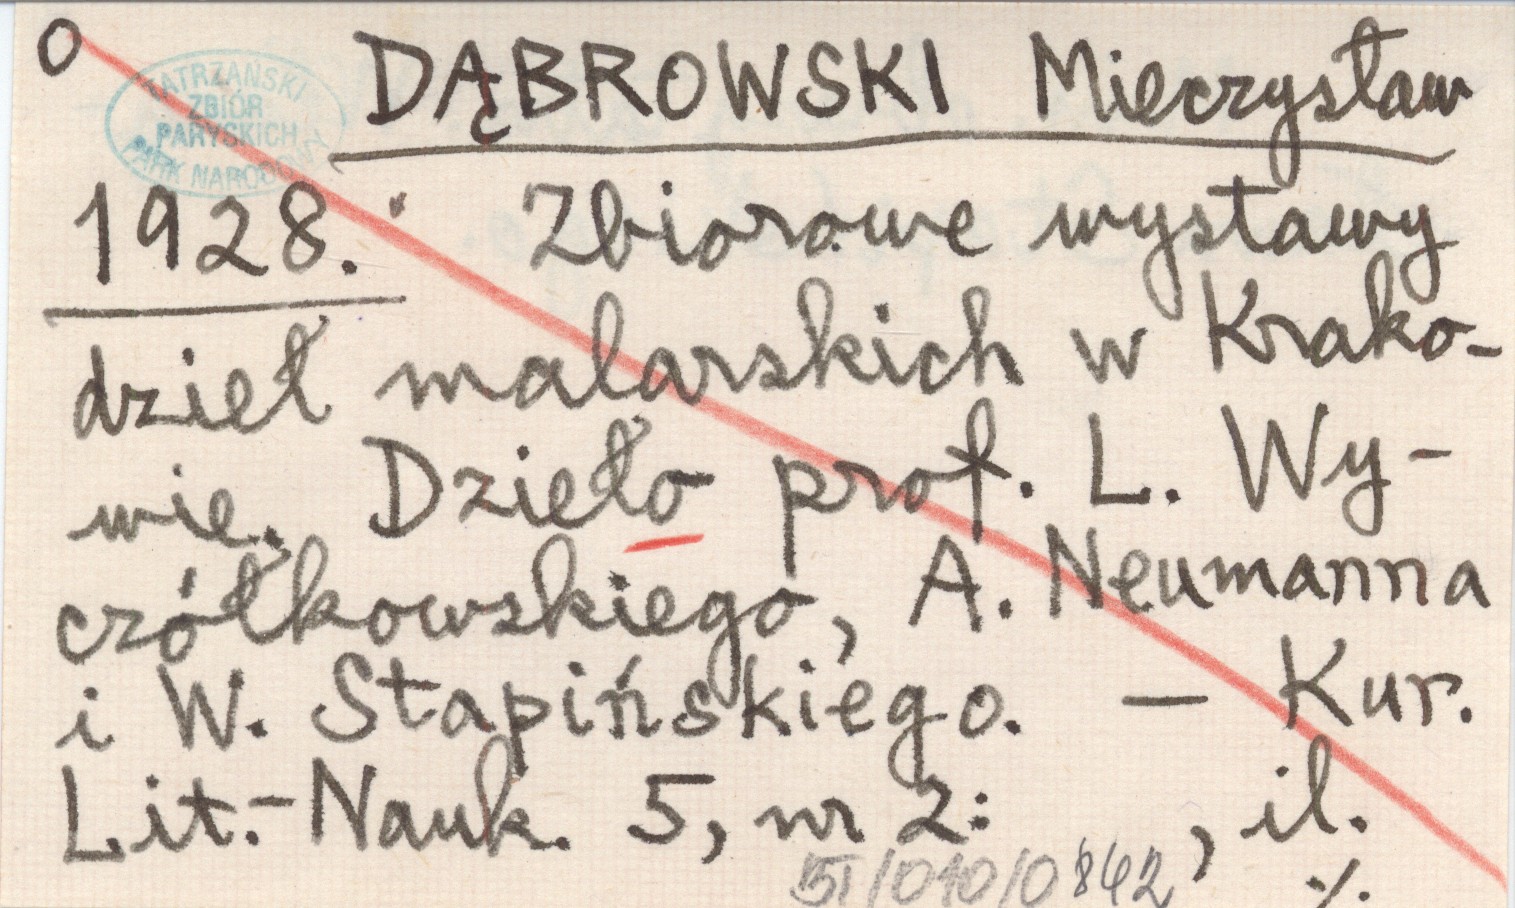 O
TATRZAŃSKI
ZBIÓR
PARYSKICH
PARK NARODOWY
DĄBROWSKI Mieczysław
1928. Zbiorowe wystawy
dzieł malarskich w Krako-
wie. Dzieło prof. L. Wy-
czółkowskiego, A. Neumanna
i W. Stapińskiego. — Kur.
Lit.-Nauk. 5, nr 2: , il.
51/010/0842
./.